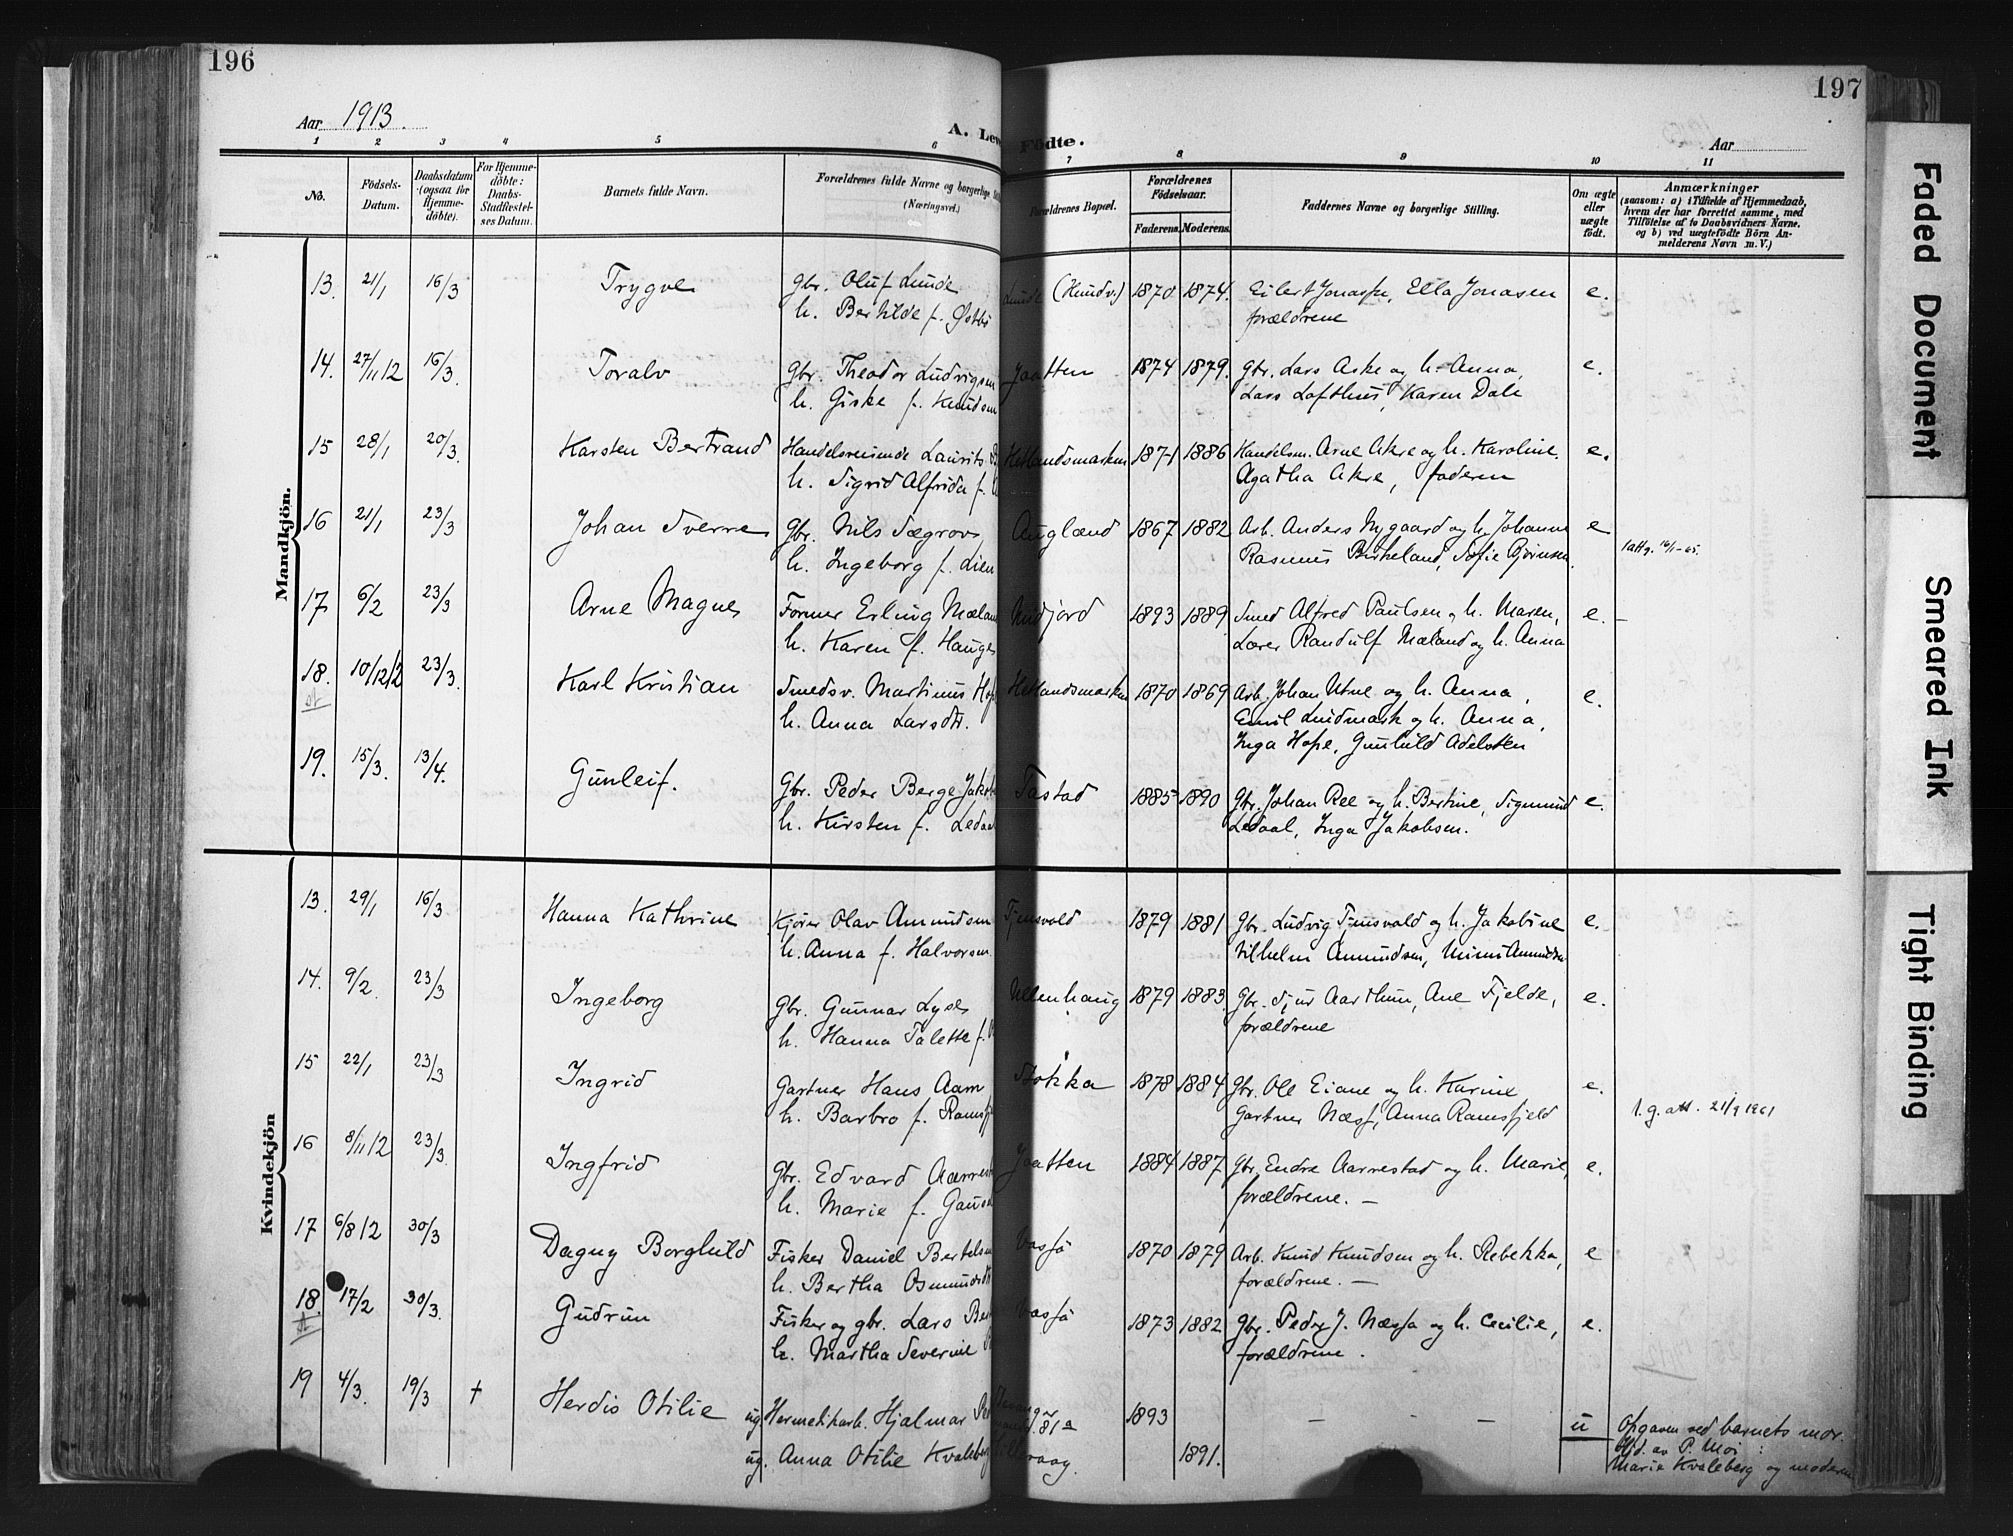 196
197
Aar 1913.
A. Lev
Födte.
Aar
1 2 3 4 5 6 7 8 9 10 11
No.
Födsels-
Datum.
Daabsdatum
(ogsaa för
Hjemme-
döbte).
For Hjemme-
döbte:
Daabs-
Stadfæstel-
ses Datum.
Barnets fulde Navn.
Forældrenes fulde Navne og borgerlige
(Næringsvei.)
Forældrenes Bopæl.
Forældrenes
Födselsaar.
Faderens. Moderens.
Faddernes Navne og borgerlige Stilling.
Om ægte
eller
uægte
födt.
Anmærkninger
(saasom: a) i Tilfælde af Hjemmedaab,
hvem der har forrettet samme, med
Tilföielse af to Daabsvidners Navne,
og b) ved uægtefödte Börn An-
melderens Navn m. V.)
Mandkjön.
13. 21/1 16/3 Trygve Gbr. Oluf Lunde Lunde (Hundv.) 1870 1874. Eilert Jonassen, Ella Jonasen e.
h. Bertilde f. forældrene
14. 27/11 12 16/3. Toralv Gbr. Theodor Ludvigsen Jaatten 1874 1879. Gbr. Lars Aske og h. Anna, e.
h. Giske f. Knudsen Lars Lofthus, Karen Dale
15 28/1 20/3. Karsten Bertrand Handelsreisende Laurits Hetlandsmarken 1871 1886 Handelsm. Arne Akre og h. Karoline. e.
h. Sigrid Alfrida f. Agatha Akre, faderen
16 21/1 23/3 Johan Sverre Gbr. Nils Sægrov, Augland 1867 1882 Arb. Anders Nygaard og h. Johanne e
h. Ingeborg f. Lien Rasmus Birkeland, Sofie Bjørnsen.
1 att g. 16/1-65.
17 6/2 23/3 Arne Magnes Former Erling Mæland 1893 1889 Smed Alfred Paulsen og h. Maren, e.
h. Karen f. Hauge Lærer Randulf Mæland og h. Anna
18. 10/12 12 23/3. Karl Kristian Smedsv. Martinus Hope Hetlandsmarken 1870 1869 Arb. Johan Utne og h. Anna, e.
h. Anna Larsdtr. Emil Lindmark og h. Anna,
Inga Hope, Gunhild Adelsten
19. 15/3. 13/4. Gunleif. Gbr. Peder Berge Jakob Tastad 1885 1890 Gbr. Johan Ree og h. Bertine, Sigmund e.
h. Kirsten f. Ledaal Ledaal, Inga Jakobsen.
Kvindekjön
13. 29/1 16/3. Hanna Kathrine Kjører Olav Amundsen Tjensvold 1879 1881 Gbr. Ludvig Tjensvold og h. Jakobine e.
h. Anna f. Halvorsen Vilhelm Amundsen, Mimi Amundsen
14. 9/2. 23/3 Ingeborg Gbr. Gunnar Lyse Ullenhaug 1879 1883. Gbr. Sjur Aarthun, Ane Fjelde, e.
h. Hanna Talette f. forældrene
15 22/1 23/3 Ingrid Gartner Hans Aam Stokka 1878 1884 Gbr. Ole Eiane og h. Karine e.
h. Barbro f. Ramsfj Gartner Næss, Anna Ramsfjeld
1. g. att. 21/9 1961
16 8/11 12 23/3. Ingfrid Gbr. Edvard Aarrest Jaatten 1884 1887 Gbr. Endre Aarrestad og h. Marie, e.
h. Marie f. Gausel forældrene. —
17 6/8 12 30/3 Dagny Borghild Fisker Daniel Bertelsen Vasfö 1870 1879 Arb. Knud Knudsen og h. Rebekka, e
h. Bertha Osmundsdtr forældrene. —
18. 17/2 30/3. Gudrun Fisker og gbr. Lars Ber Vasfö 1873 1882 Gbr. Peder J. Næsfa og h. Cecilie, e.
h. Martha Severine forældrene.
19 4/3. 19/3 † Herdis Otilie ug. Hermetikarb. Hjalmar Stavanger 1893 — — — u Opgaven ved barnets mor.
81 a
ug. Anna Otilie Kvaleberg 1891. Hjd. av P. Moi:
Marie Kvaleberg og moderen
Faded Document
Smeared Ink
Tight Binding